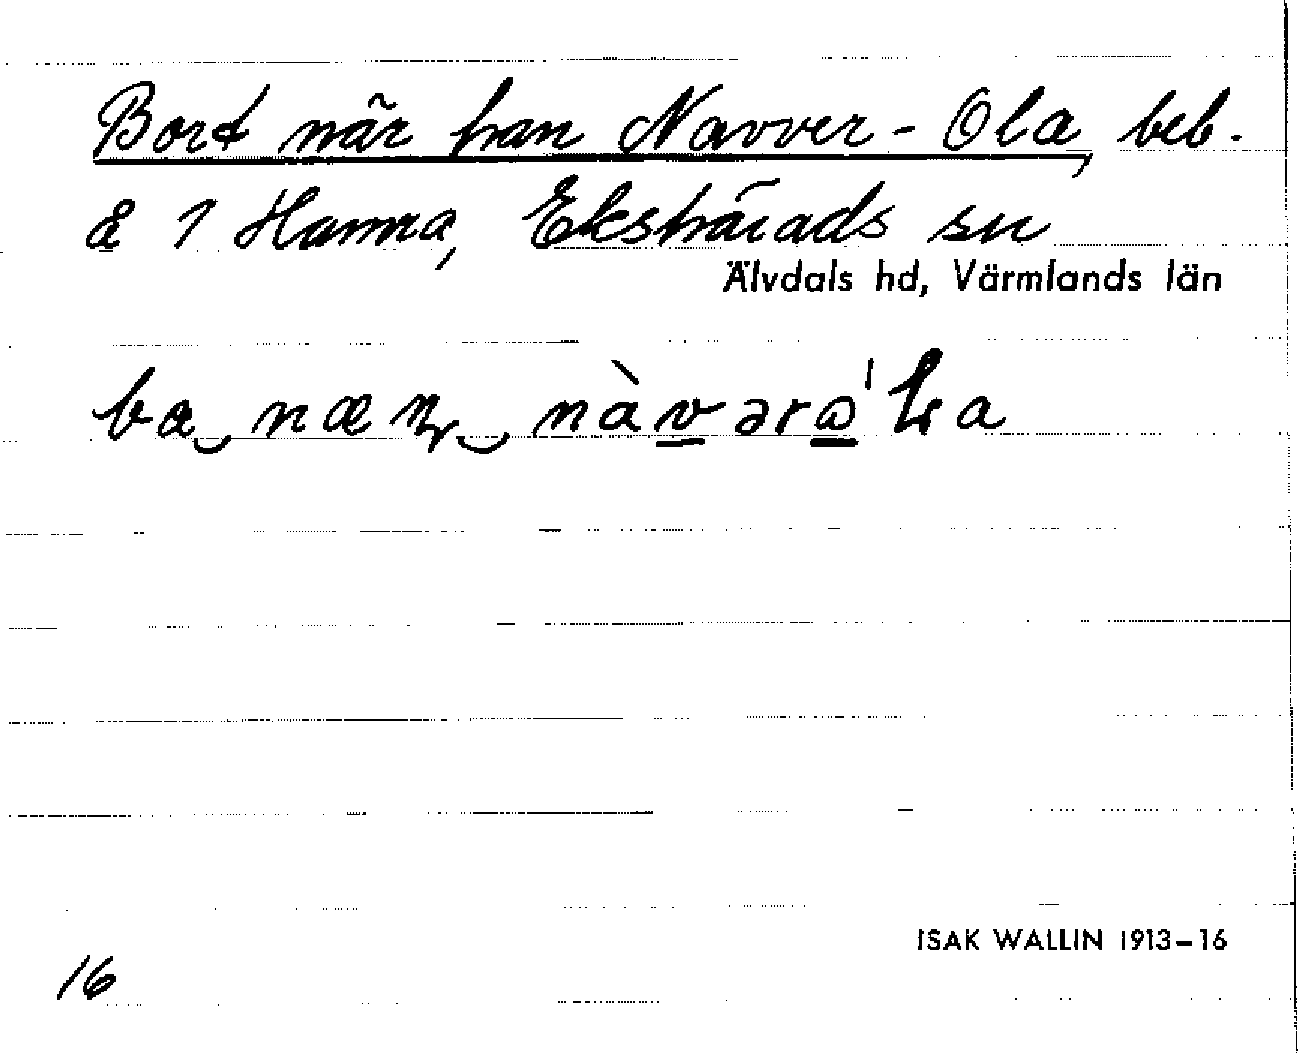 Bort när han Navver-Ola, beb.
å 1 Hanna, Ekshärads sn
Älvdals hd, Värmlands län
ISAK WALLIN 1913–16
16